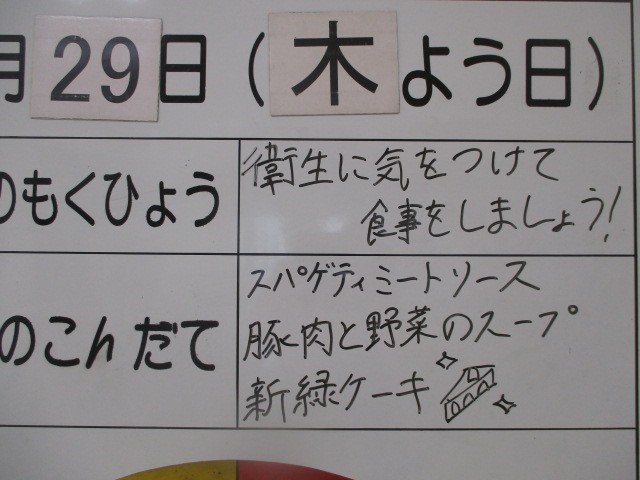 月29日(木よう日)
のもくひょう
衛生に気をつけて
食事をしましょう!
のこんだて
スパゲティミートソース
豚肉と野菜のスープ
新緑ケーキ